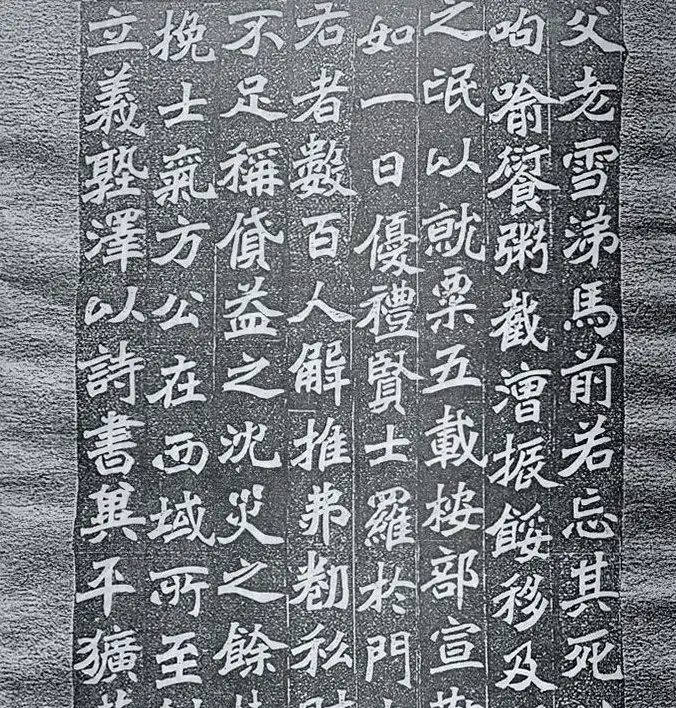 父老雪涕馬前若忘其死
呴喻餰粥截漕振餒移及
之氓以就粟五載按部宣
如一日優禮賢士羅於門
右者數百人解推弗勌私
不足稱貸益之沈災之餘
挽士氣方公在西域所至
立義塾澤以詩書冀平獷